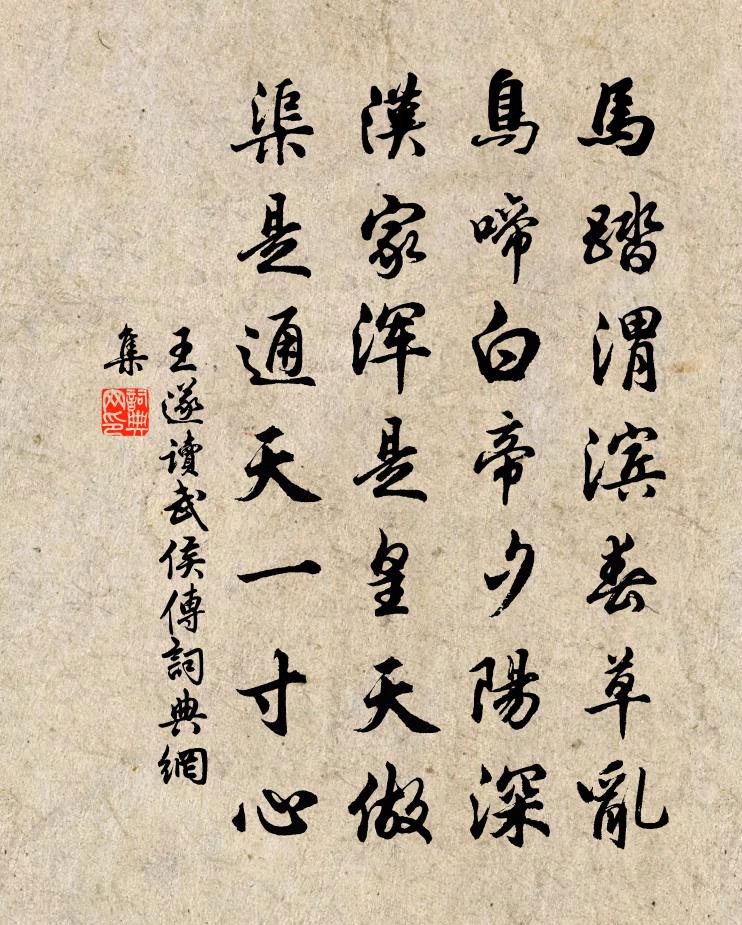 馬踏渭滨春草亂
鳥啼白帝夕陽深
漢家浑是皇天做
渠是通天一寸心
王遂讀武侯傳詞典網
集
詞典
网印